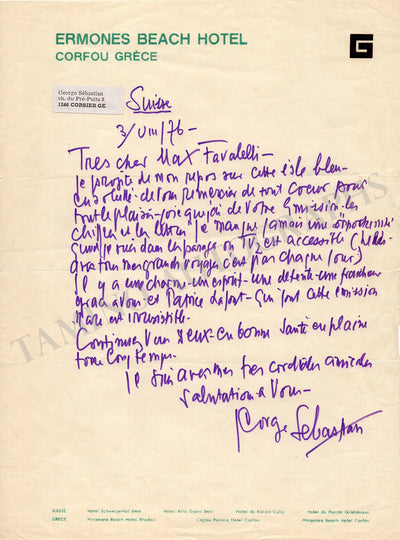 ERMONES BEACH HOTEL
CORFOU GRÈCE
George Sébastian
ch. du Pré-Puits 8
1246 CORSIER GE
Suisse
3/VIII/76-
Tres cher Max Favalelli-
Je profite de mon repos sur cette isle bleu-
ensoleillé de vous remercier de tout coeur pour
tout le plaisir-joie que j'ai de votre Emission les
chiffres et les lettres je manque jamais une
quand je suis dans les parages où TV est accessible
mes grands voyages c'est pas chaque jour)
Il y a une charme-un esprit-une détente-une fraicheur
grace a vous et Patrice Lafont- qui font cette emission
rare et irresistible-
Continuez Vous deux-en bonne santé en pleine
forme longtemps-
Je suis avec mes tres cordiales amicales
salutations a Vous-
George Sébastian
SUISSE Hotel Schweizerhof Bern Hotel Alfa Gaarn Bern Hotel du Raisin Cully Hotel du Monde Grandvaux
GRÈCE Miramare Beach Hotel Rhodos Corfou Palace Hotel Corfou Miramare Beach Hotel Corfou
TAMINO AUTOGRAPHS